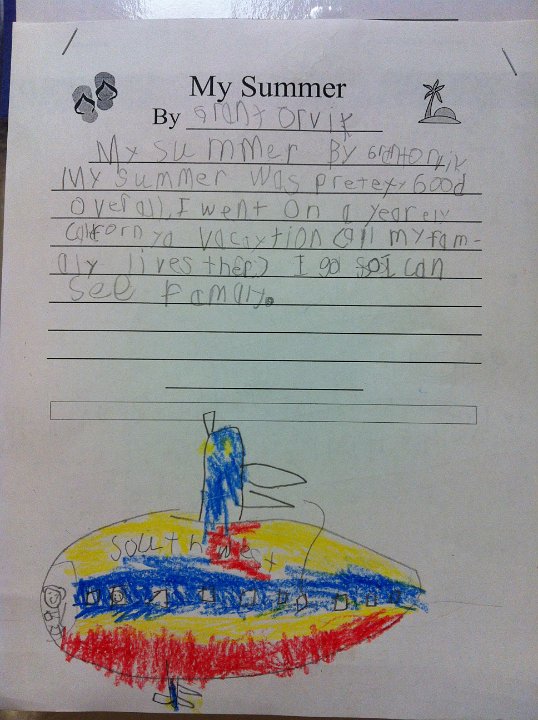 My Summer
By Grant Orvik
My summer By Grant Orvik
My summer was pretexy Good
overall, I went on a yearely
caleforn ya vacaytion (all my fam-
aly lives ther) I go so I can
see Famaly.
southwest